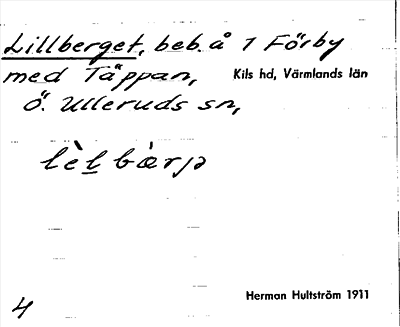 Lillberget, beb. å 1 Förby
med Täppan, Kils hd, Värmlands län
Ö. Ulleruds sn,
Herman Hultström 1911
4